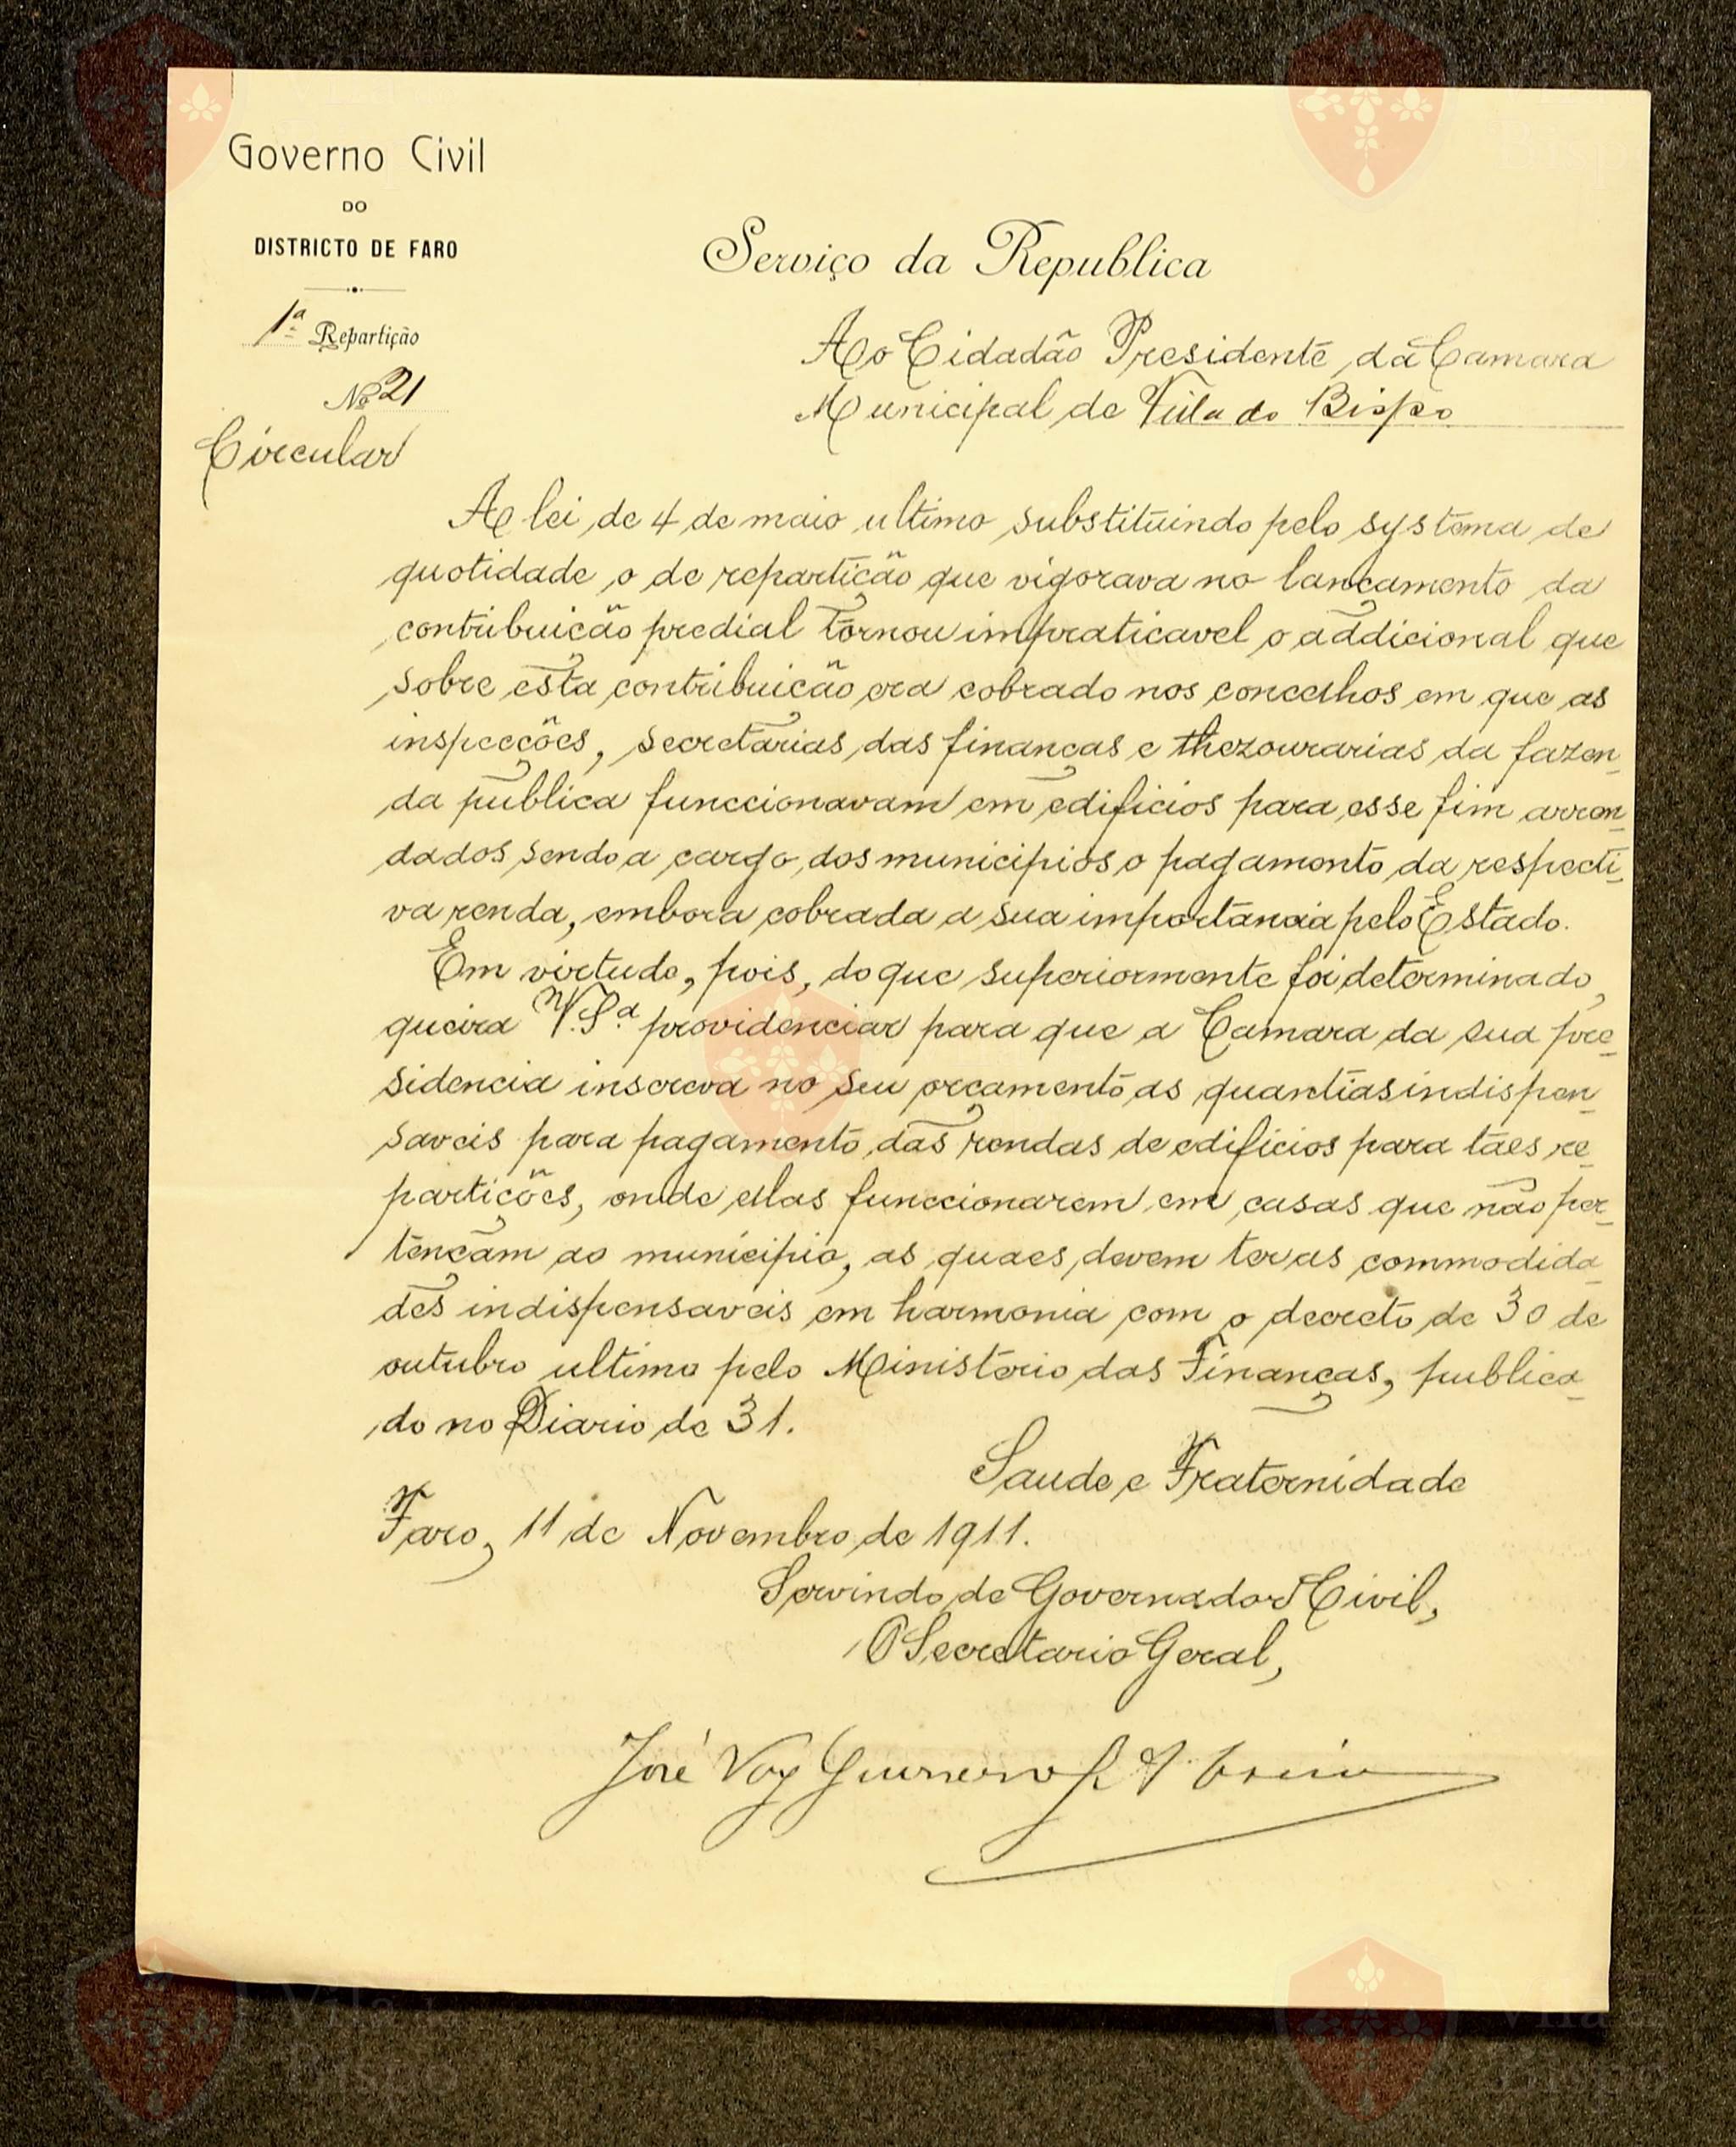 Governo Civil
DO
DISTRICTO DE FARO
1ª Repartição
Nº 21
Circular
Serviço da Republica
Ao Cidadão Presidente da Camara
Municipal de Villa do Bispo
A lei de 4 de maio ultimo substituindo pelo systema de
quotidade o de repartição que vigorava no lançamento da
contribuição predial tornou impraticavel o addicional que
sobre esta contribuição era cobrado nos concelhos em que as
inspecções, secretarias das finanças e thezourarias da fazen-
da publica funccionavam em edificios para esse fim arren-
dados sendo a cargo dos municipios o pagamento da respecti-
va renda, embora cobrada a sua importancia pelo Estado.
Em virtude, pois, do que superiormente foi determinado,
queira V. Sª providenciar para que a Camara da sua pre-
sidencia inscreva no seu orçamento as quantias indispen-
saveis para pagamento das rendas de edificios para tães re-
partições, onde ellas funccionarem em casas que não per-
tençam ao municipio, as quaes devem ter as commodida-
des indispensaveis em harmonia com o decreto de 30 de
outubro ultimo pelo Ministerio das Finanças, publica-
do no Diario de 31.
Saude e Fraternidade
Faro, 11 de Novembro de 1911.
Servindo de Governador Civil,
O Secretario Geral,
José Vaz Guerreiro
Vila do
Bispo